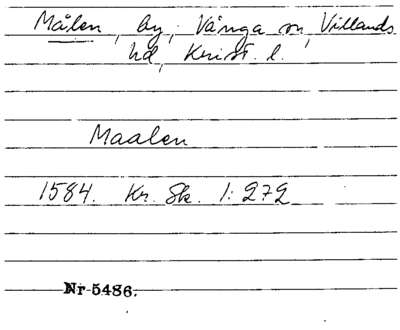 Målen, by, Vånga sn, Villands
hd, Krist. l.
Maalen
1584. Kr. Sk. 1:272
Nr 5486.